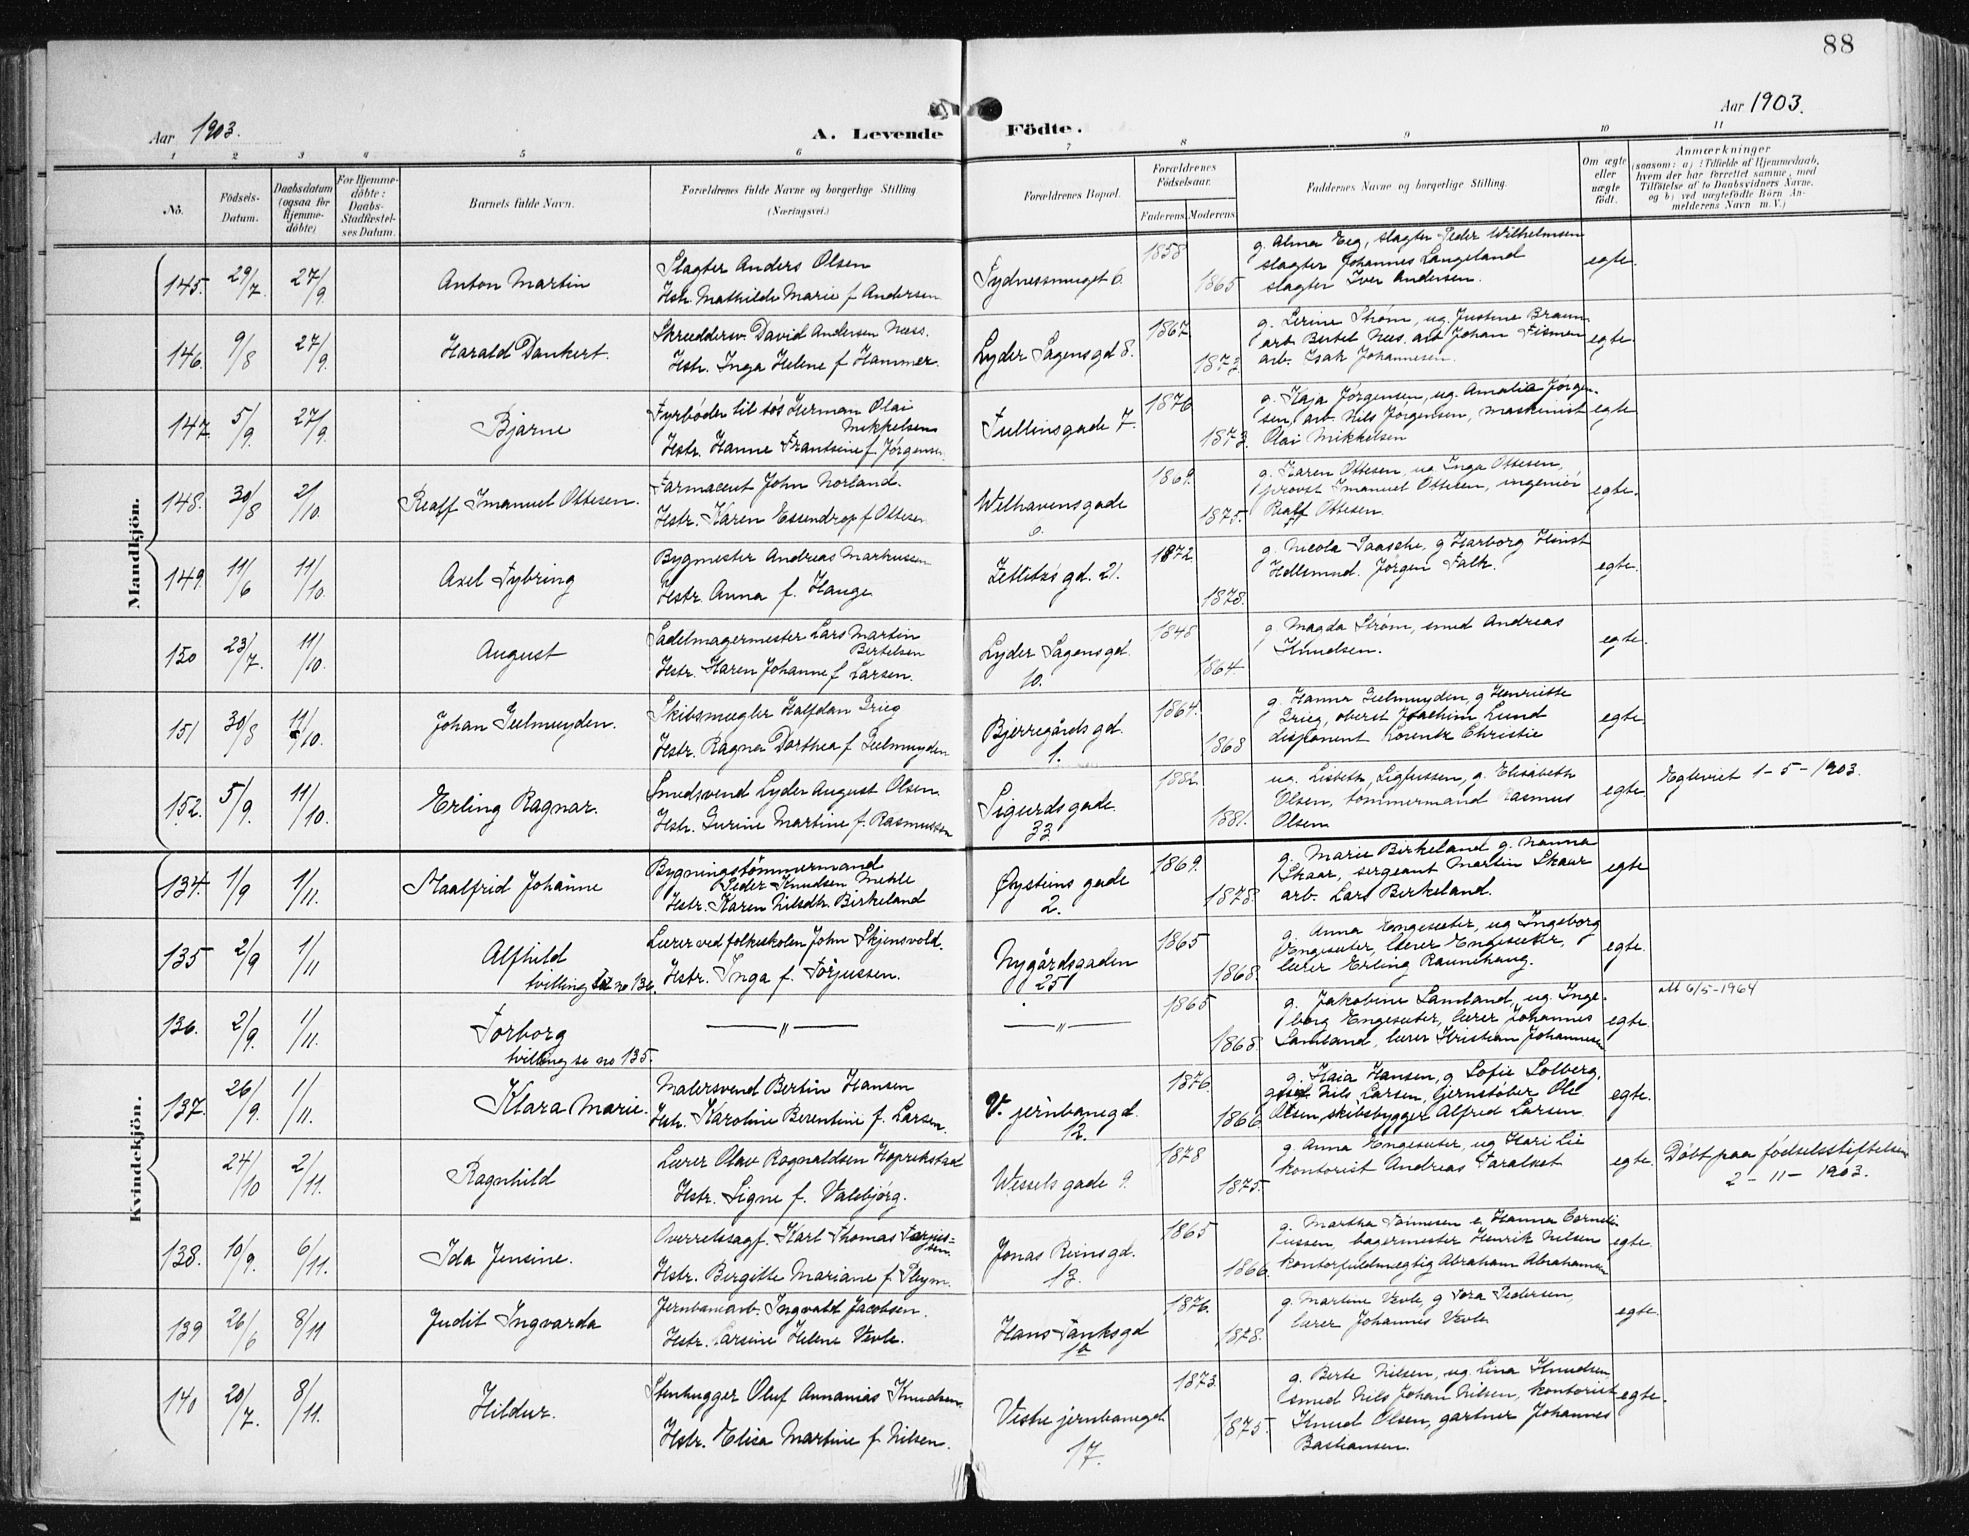 88
Aar 1903.
A. Levende Födte.
Aar 1903.
1 2 3 4 5 6 7 8 9 10 11
No.
Födsels-Datum.
Daabsdatum (ogsaa for Hjemme-döbte)
For Hjemme-döbte: Daabs-Stadfæstel-ses Datum.
Barnets fulde Navn.
Forældrenes fulde Navne og borgerlige Stilling. (Næringsvei.)
Forældrenes Bopæl.
Forældrenes Födselsaar.
Faderens Moderens
Faddernes Navne og borgerlige Stilling.
Om ægte eller uægte födt.
Anmærkninger
(saasom: a) i Tilfælde af Hjemmedaab,
hvem der har forrettet samme, med
Tilföielse af to Daabsvidners Navne,
og b) ved uægtefödte Börn An-
melderens Navn m. V.)
Mandkjön.
145. 29/7. 27/9. Anton Martin
Slagter Anders Olsen
Hstr. Mathilde Marie f. Andersen
Sydnessmuget 6. 1858 1865
g. Alma Eeg, slagter Peder Wilhelmsen
slagter Johannes Langeland
slagter Iver Andersen.
egte.
146. 9/8 27/9. Harald Dankert.
Skreddersv. David Andersen Næss.
Hstr. Inga Helene f. Hammer.
Lyder Sagensgd 8. 1867 1872
g. Serine Strøm, ug. Justine Braun
arb. Bertel Nees. arb Johan Tismen
arb. Isak Johannesen.
egte.
147 5/9. 27/9. Bjarne
Fyrbøder til søs Herman Olai
Mikkelsen
Hstr. Hanne Frantsine f. Jørgensen.
Tullinsgade 7. 1876 1873.
g. Kaja Jørgensen, ug. Amalia Jørgen-
sen, arb. Nils Jørgensen, maskinist
Olai Mikkelsen
egte
148. 30/8 2/10. Realf Imanuel Ottesen.
Farmaceut John Norland.
Hstr. Karen Essendrop f. Ottesen
Welhavensgade 1869. 1875.
g. Karen Ottesen, ug Inga Ottesen,
provst Imanuel Ottesen, ingeniør
Realf Ottesen.
egte.
149. 11/6 11/10. Axel Fybring
Bygmester Andreas Markussen
Hstr. Anna f. Hauge
Zetlitz's gd. 21. 1872 1878.
g. Nicola Paasche, g Harborg Hinst
Hellsmund. Jørgen Falk.
egte.
150 23/7. 11/10. August
Sadelmagermester Lars Martin
Bertelsen
Hstr. Karen Johanne f. Larsen.
Lyder Sagensgd.
10. 1848 1864.
g. Magda Strøm, smed Andreas
Knudsen.
egte.
151 30/8 11/10. Johan Geelmuyden.
Skibsmægler Halfdan Grieg
Hstr. Ragna Dorthea f. Geelmuyden
Bjerregårds gd.
1. 1864. 1868
g. Hanna Geelmuyden, g Henriette
Grieg, oberst Joachim Lund
disponent Lorentz Christie
egte
152. 5/9. 11/10. Erling Ragnar.
Smedsvend Lyder August Olsen.
Hstr. Gurine Martine f. Rasmussen
Sigurdsgade.
33 1882. 1881.
ug. Lisbeth Sigfussen, g. Elisabeth
Olsen, tømmermand Rasmus
Olsen
egte. Egteviet 1-5-1903.
Kvindekjön.
134. 1/9 1/11. Maalfrid Johanne
Bygningstømmermand
Peder Knudsen Mehle
Hstr. Karen Nilsdtr. Birkeland
Øysteins gade
2. 1869. 1878.
g. Marie Birkeland g. Nanna
Skaar, sergeant Martin Skaar
arb. Lars Birkeland.
egte
135 2/9 1/11 Alfhild
tvilling se no 136.
Lærer ved folkeskolen John Skjensvold.
Hstr. Inga f. Torjussen.
Nygårdsgaden
251 1865 1868.
g. Anna Engesæter, ug Ingeborg
Engesæter, lærer Engesæter,
lærer Erling Raunehaug.
egte.
136. 2/9. 1/11. Torborg
tvilling se no 135.
— " —
— " — 1865 1868.
g. Jakobine Samland, ug. Inge-
borg Engesæter, lærer Johannes
Samland, lærer Kristian Johannesen
egte. att 6/5-1964
137. 26/9. 1/11. Klara Marie.
Malersvend Bertin Hansen
Hstr. Karoline Berentine f. Larsen.
V. jernbanegd.
12. 1876. 1866
g. Kaia Hansen, g Sofie Solberg,
Nils Larsen, jernstøber Ole
Olsen, skibsbygger Alfred Larsen
egte.
24/10 2/11. Ragnhild
Lærer Olav Ragnaldsen Hoprekstad
Hstr. Signe f. Valsbjørg.
Wesselsgade 9. 1878 1875.
g. Anna Engesæter, ug Kari Lie
kontorist Andreas Taralset
egte. Døbt paa fødselsstiftelsen
2-11-1903.
138. 10/9. 6/11. Ida Jensine.
Overretssagf. Karl Thomas Torjus-
sen.
Hstr. Bergitte Mariane f. Pleym.
Jonas Reinsgd.
13. 1865 1866.
g. Martha Tønnesen e. Hanna Corneli-
ussen, bagermester Henrik Nilsen
kontorfuldmægtig Abraham Abrahamsen
egte.
139 26/6 8/11 Judit Ingvarda
Jernbanearb. Ingvald Jacobsen.
Hstr. Larsine Helene Vevle.
Hans Tanksgd
1b 1876. 1878.
g. Martine Vevle, g Tora Pedersen,
lærer Johannes Vevle
egte.
140 20/7. 8/11. Hildur.
Stenhugger Oluf Annanias Knudsen.
Hstr. Elisa Martine f. Nilsen.
Vestre jernbanegd.
17. 1873. 1875.
g. Berte Nilsen, ug. Lina Knudsen,
smed Nils Johan Nilsen, kontorist
Knud Olsen, gartner Johannes
Bastiansen.
egte.